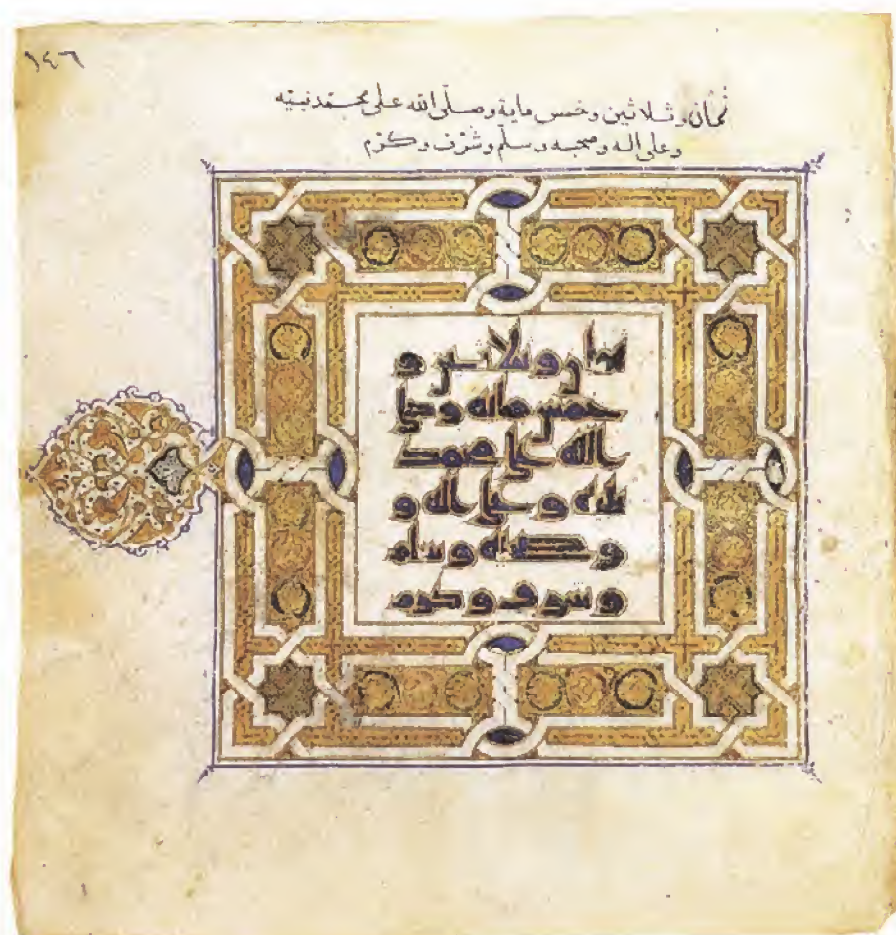 ١٤٦
ثمان وثلاثين وخمس ماية وصلّى الله على محمّد نبيّه
وعلى اله وصحبه وسلّم وشرّف وكرّم
ثمان وثلاثين و
خمس مائة وصلى
الله على محمد
نبيه وعلى اله و
وصحبه وسلم
وشرف وكرم